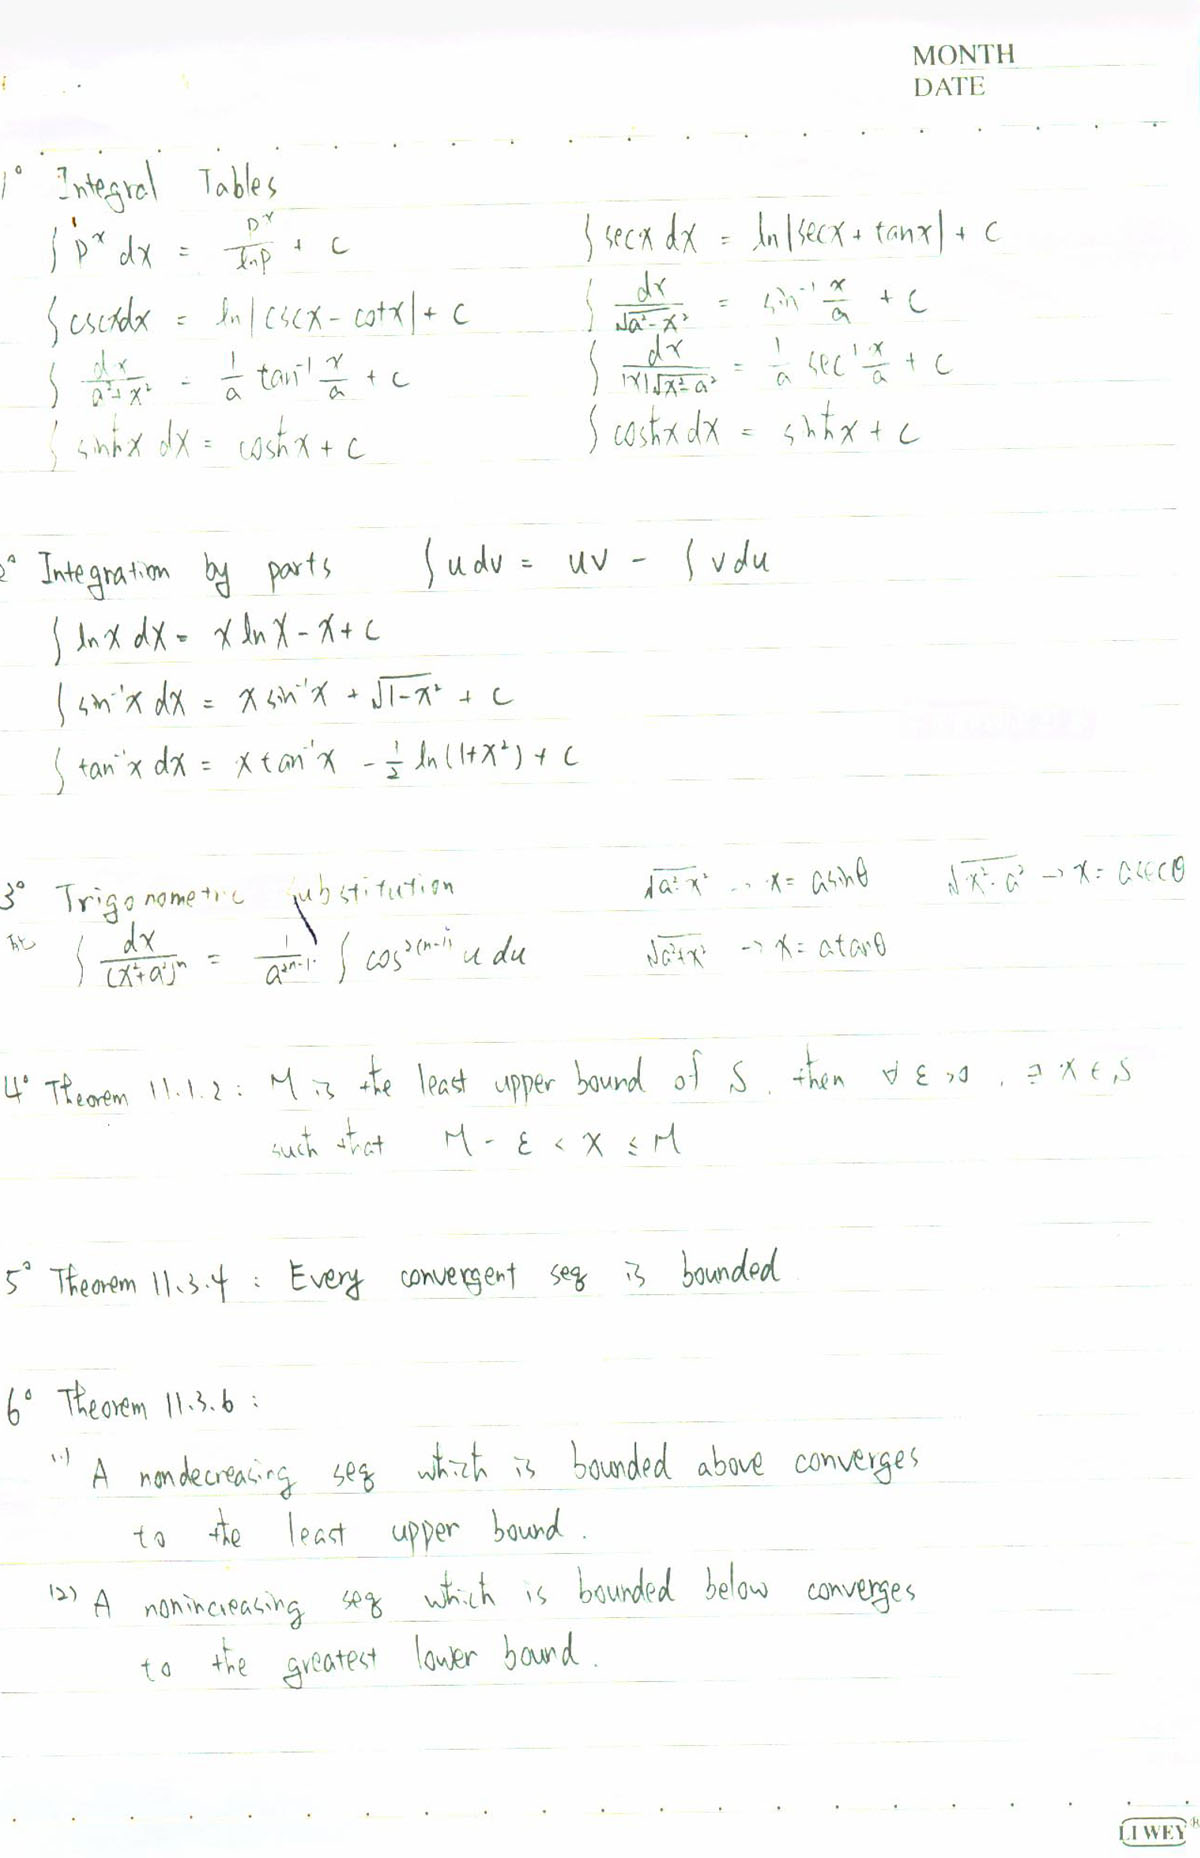 MONTH
DATE
1° Integral Tables
∫ p^x dx = p^x/ln p + C    ∫ sec x dx = ln|sec x + tan x| + C
∫ csc x dx = ln|csc x - cot x| + C    ∫ dx/√(a²-x²) = sin⁻¹ x/a + C
∫ dx/(a²+x²) = 1/a tan⁻¹ x/a + C    ∫ dx/(|x|√(x²-a²)) = 1/a sec⁻¹ x/a + C
∫ sinh x dx = cosh x + C    ∫ cosh x dx = sinh x + C
2° Integration by parts    ∫ u dv = uv - ∫ v du
∫ ln x dx = x ln x - x + C
∫ sin⁻¹x dx = x sin⁻¹x + √(1-x²) + C
∫ tan⁻¹x dx = x tan⁻¹x - ½ ln(1+x²) + C
3° Trigonometric Substitution    √(a²-x²) → x = a sinθ    √(x²-a²) → x = a secθ
∫ dx/(x²+a²)^n = 1/a^(2n-1) ∫ cos^(2(n-1)) u du    √(a²+x²) → x = a tanθ
4° Theorem 11.1.2 : M is the least upper bound of S, then ∀ ε > 0, ∃ x ∈ S
such that M - ε < x ≤ M
5° Theorem 11.3.4 : Every convergent seq is bounded
6° Theorem 11.3.6 :
(1) A nondecreasing seq which is bounded above converges
to the least upper bound.
(2) A nonincreasing seq which is bounded below converges
to the greatest lower bound.
LI WEY®